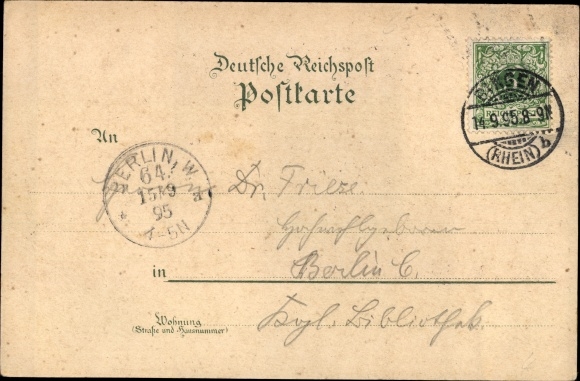 Deutsche Reichspost
Postkarte
BINGEN
14.9.95.8-9N
(RHEIN) b
An
BERLIN, W
64
15 9
95
Dr. Frieze
Hochwohlgeboren
in Berlin C.
Wohnung
(Straße und Hausnummer)
Kgl. Bibliothek.